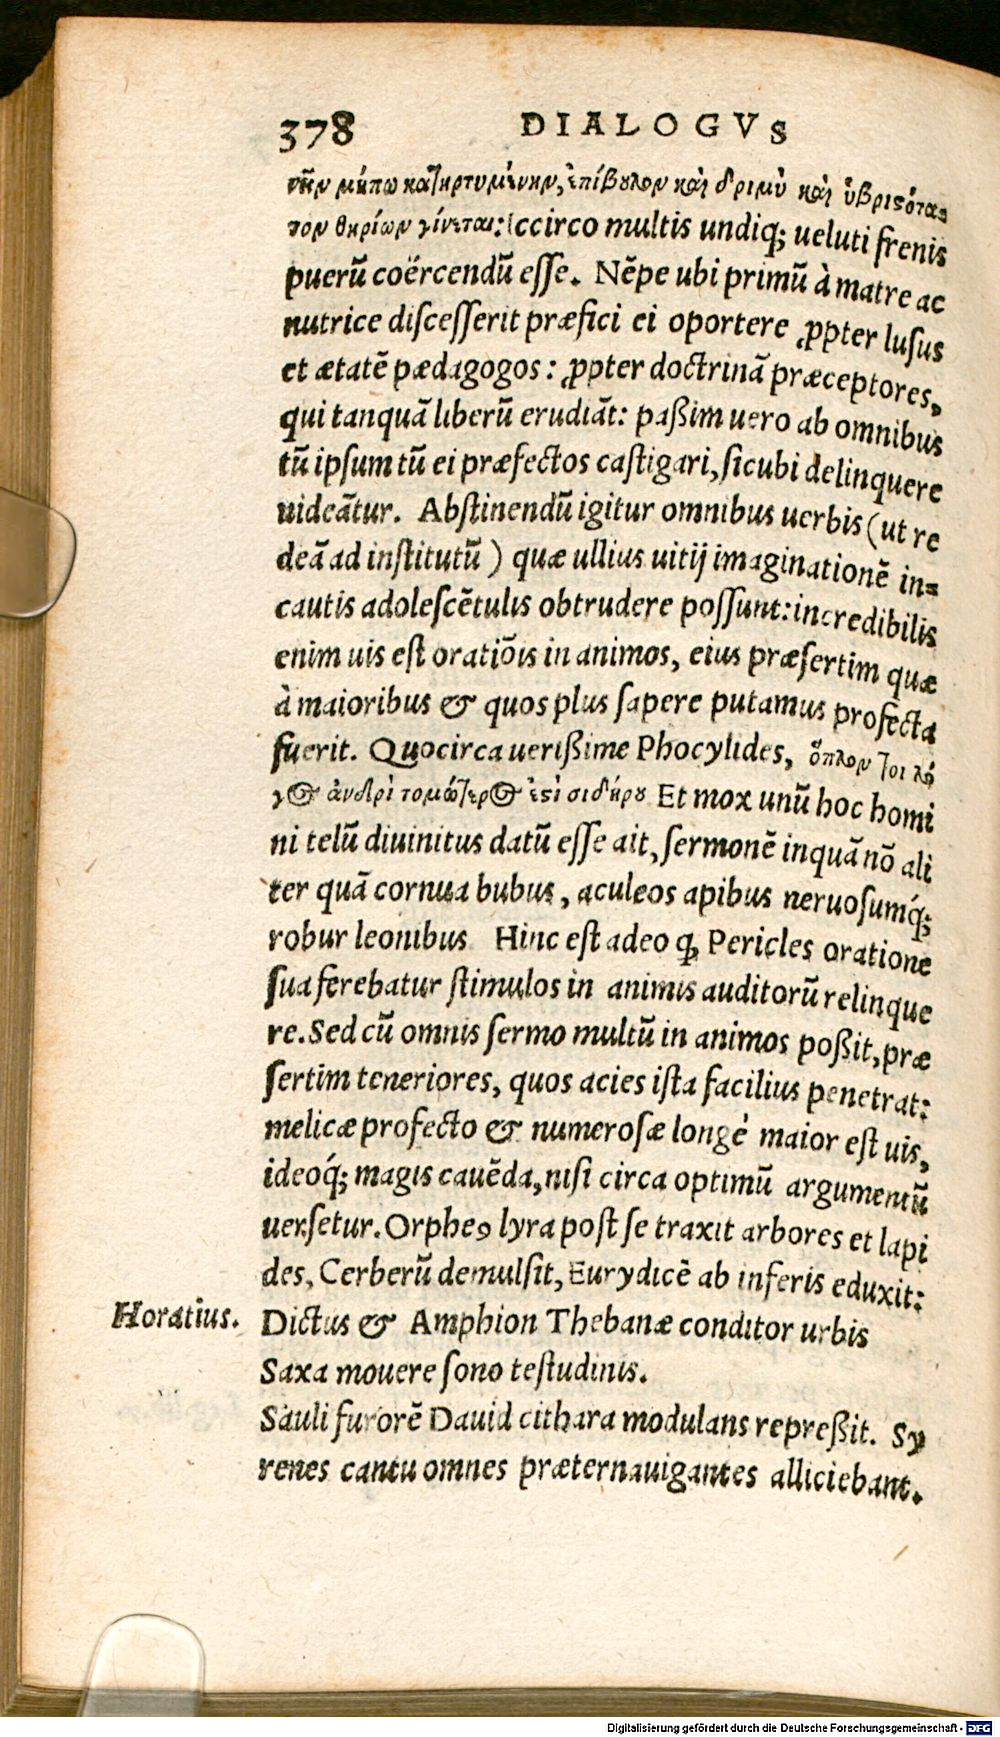 378 DIALOGVS
νῆν μήπω κατηρτυμένην, ἐπίβουλον καὶ δριμὺ καὶ ὑβριστότα=
τον θηρίων γίνεται: Iccirco multis undiq; ueluti frenis
puerũ coërcendũ eſſe. Nẽpe ubi primũ à matre ac
nutrice diſceſſerit præfici ei oportere ꝓpter luſus
et ætatẽ pædagogos: ꝓpter doctrinã præceptores,
qui tanquã liberũ erudiãt: paßim uero ab omnibus
tũ ipſum tũ ei præfectos caſtigari, ſicubi delinquere
uideãtur. Abſtinendũ igitur omnibus uerbis (ut re
deã ad inſtitutũ) quæ ullius uitij imaginationẽ in=
cautis adoleſcẽtulis obtrudere poſſunt: incredibilis
enim uis eſt oratiõis in animos, eius præſertim quæ
à maioribus & quos plus ſapere putamus profecta
fuerit. Quocirca uerißime Phocylides, ὅπλον τοι λό
γος ἀνδρὶ τομώτερος ἐστὶ σιδήρου Et mox unũ hoc homi
ni telũ diuinitus datũ eſſe ait, ſermonẽ inquã nõ ali
ter quã cornua bubus, aculeos apibus neruoſumq́;
robur leonibus Hinc eſt adeo ꝙ Pericles oratione
ſua ferebatur ſtimulos in animis auditorũ relinque
re. Sed cũ omnis ſermo multũ in animos poßit, præ
ſertim teneriores, quos acies iſta facilius penetrat:
melicæ profecto & numeroſæ longè maior eſt uis,
ideoq́; magis cauẽda, niſi circa optimũ argumentũ
uerſetur. Orpheꝰ lyra poſt ſe traxit arbores et lapi
des, Cerberũ demulſit, Eurydicẽ ab inferis eduxit:
Horatius. Dictus & Amphion Thebanæ conditor urbis
Saxa mouere ſono teſtudinis.
Sauli furorẽ Dauid cithara modulans repreßit. Sy
renes cantu omnes præternauigantes alliciebant.
Digitalisierung gefördert durch die Deutsche Forschungsgemeinschaft - DFG